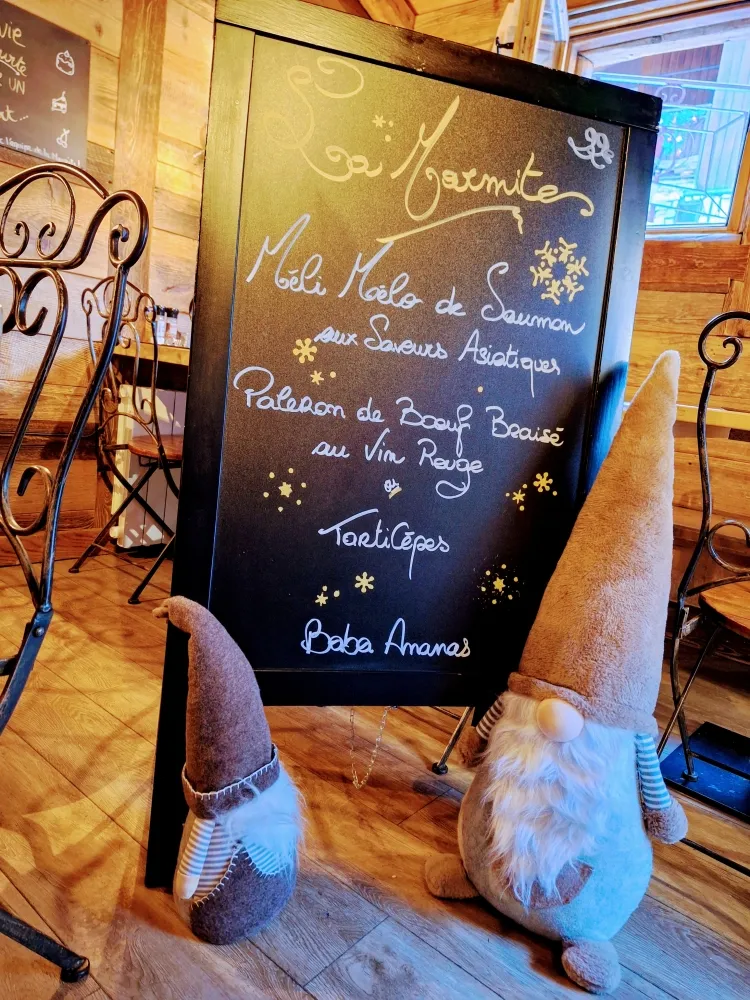 VIE
UN
La Marmite
Méli Mélo de Saumon
aux Saveurs Asiatiques
Paleron de Boeuf Braisé
au Vin Rouge
ou
TartiCêpes
Baba Ananas